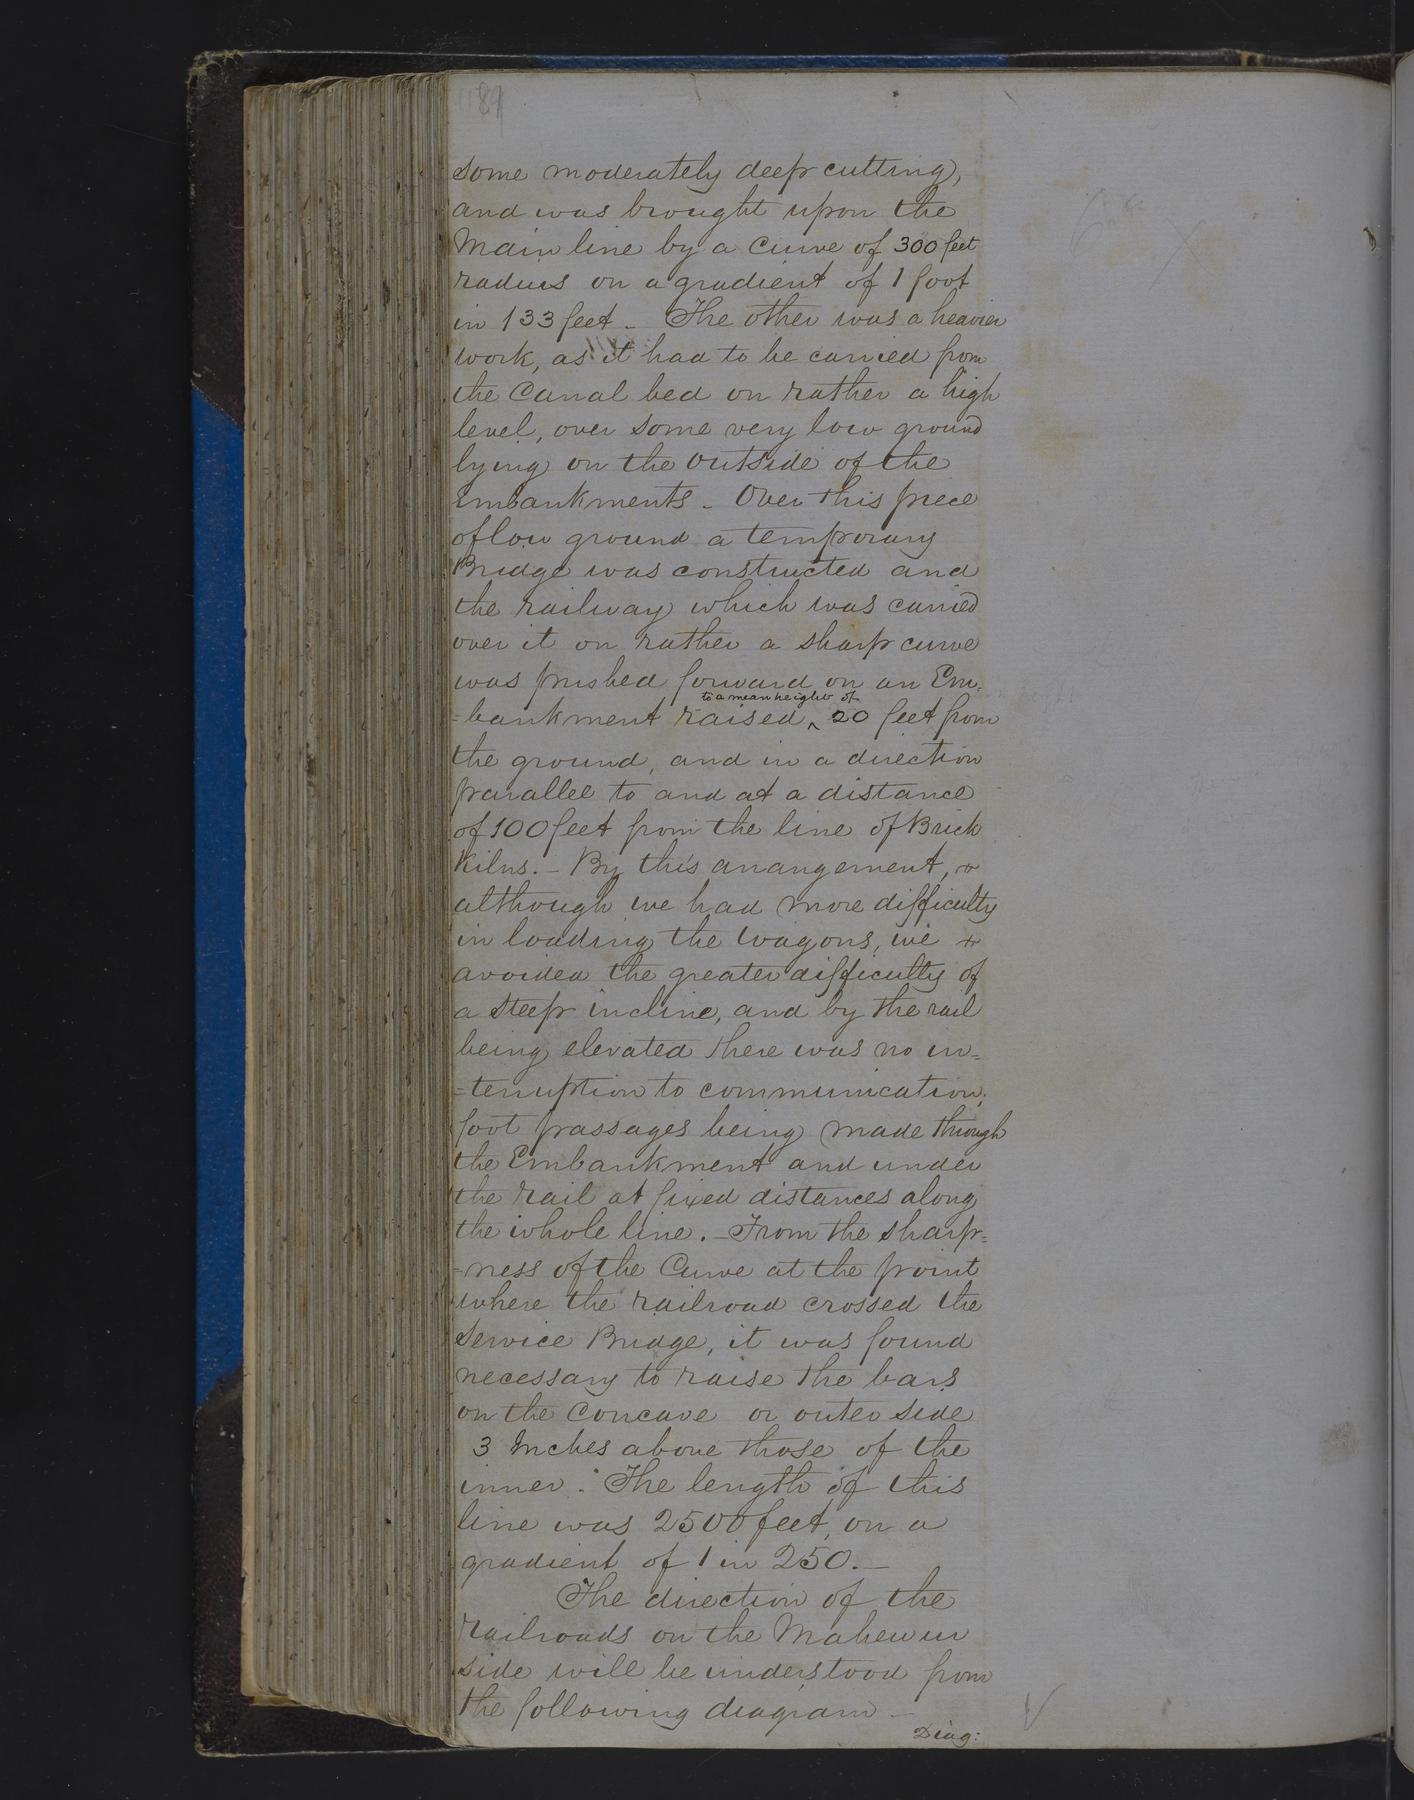 89
some moderately deep cutting,
and was brought upon the
Main line by a Curve of 300 feet
radius on a gradient of 1 foot
in 133 feet - The other was a heavier
work, as it had to be carried from
the Canal bed on rather a high
level, over some very low ground
lying on the outside of the
Embankments - Over this piece
of low ground a temporary
Bridge was constructed and
the railway which was carried
over it on rather a sharp curve
was pushed forward on an Em-
to a mean height of
=bankment raised ^ 20 feet from
the ground, and in a direction
parallel to and at a distance
of 100 feet from the line of Brick
Kilns. - By this arrangement,
although we had more difficulty
in loading the Wagons, we
avoided the greater difficulty of
a steep incline, and by the rail
being elevated there was no in=
=terruption to communication,
foot passages being made through
the Embankment and under
the rail at fixed distances along
the whole line. - From the sharp=
=ness of the Curve at the point
where the railroad crossed the
Service Bridge, it was found
necessary to raise the bars
on the Concave or outer side
3 Inches above those of the
inner. The length of this
line was 2500 feet, on a
gradient of 1 in 250. -
The direction of the
Railroads on the Mahewur
side will be understood from
the following diagram -
Diag: